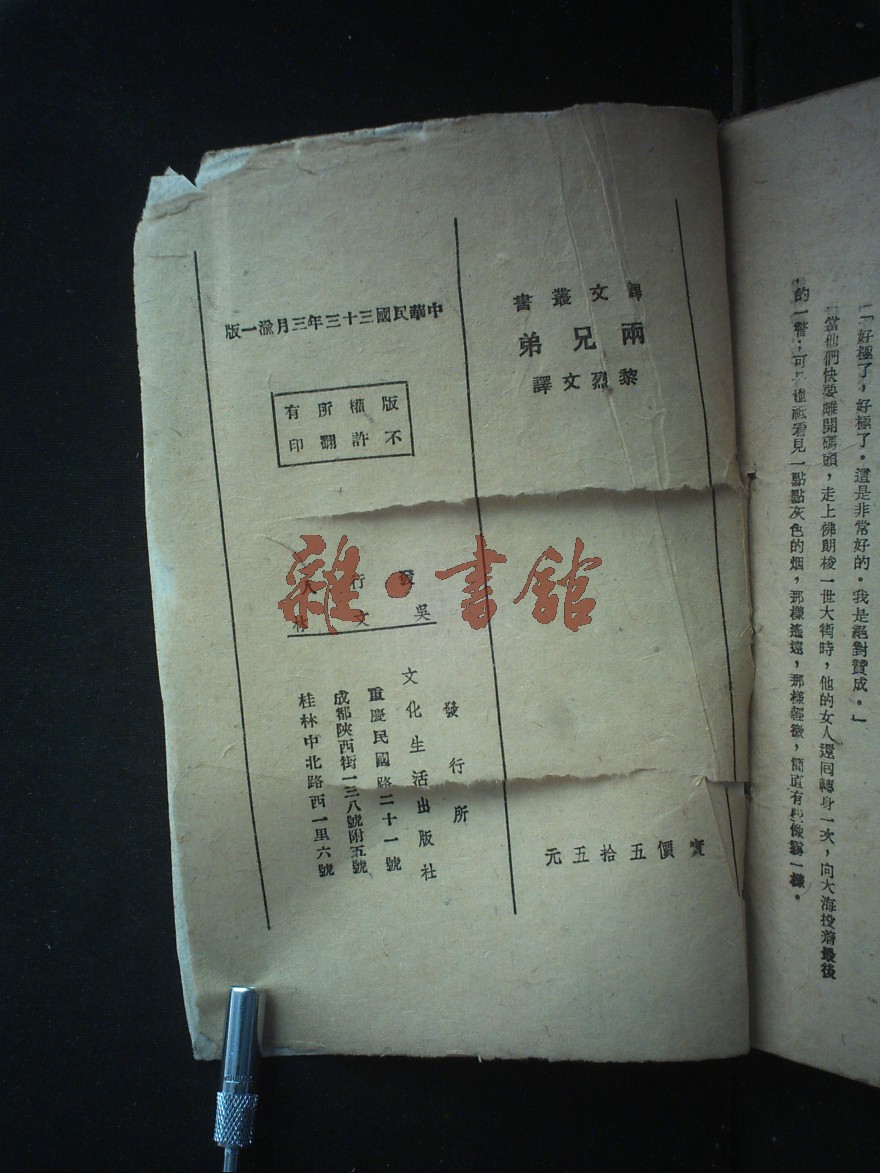 「好極了，好極了。這是非常好的。我是絕對贊成。」
當他們快要離開碼頭，走上佛朗梭一世大街時，他的女人還囘轉身一次，向大海投着最後
的一瞥；可是他祗看見一點點灰色的烟，那樣遙遠，那樣輕微，簡直有點像霧一樣。
譯文叢書
兩兄弟
黎烈文譯
實價五拾五元
中華民國三十三年三月渝一版
版權所有
不許翻印
發行人
吳文林
發行所
文化生活出版社
重慶民國路二十一號
成都陝西街一三八號附五號
桂林中北路西一里六號
雜·書館